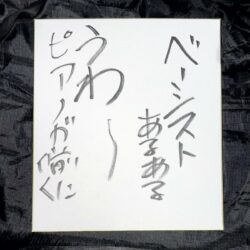 ベーシスト
あるある
うわ〜
ピアノが喰いに